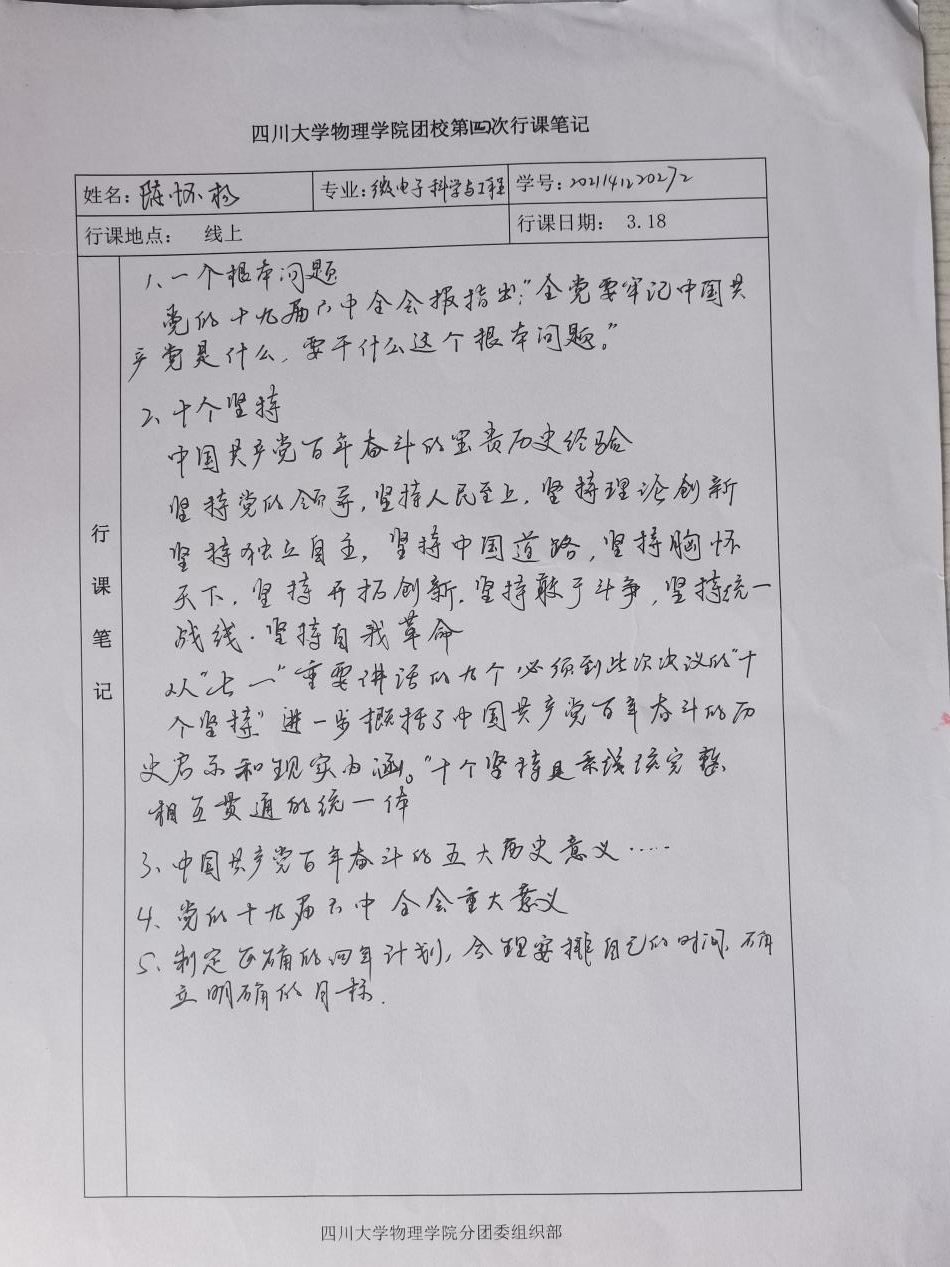 四川大学物理学院团校第四次行课笔记
姓名：陈怀杨 专业：微电子科学与工程 学号：2021141220272
行课地点： 线上 行课日期： 3.18
行课笔记
1、一个根本问题
党的十九届六中全会报指出："全党要牢记中国共
产党是什么，要干什么这个根本问题。"
2、十个坚持
中国共产党百年奋斗的宝贵历史经验
坚持党的领导，坚持人民至上，坚持理论创新
坚持独立自主，坚持中国道路，坚持胸怀
天下，坚持开拓创新，坚持敢于斗争，坚持统一
战线．坚持自我革命
从"七一"重要讲话的九个必须到此次决议的"十
个坚持"进一步概括了中国共产党百年奋斗的历
史启示和现实内涵。"十个坚持是系统完整
相互贯通的统一体
3、中国共产党百年奋斗的五大历史意义……
4、党的十九届六中全会重大意义
5、制定正确的四年计划，合理安排自己的时间，确
立明确的目标．
四川大学物理学院分团委组织部